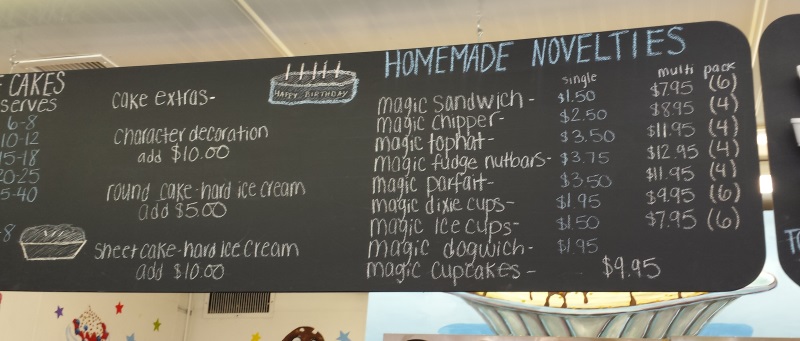 CAKES
serves
6-8
10-12
15-18
20-25
5-40
-8
cake extras-
character decoration
add $10.00
round cake-hard ice cream
add $5.00
sheet cake-hard ice cream
add $10.00
HAPPY BIRTHDAY
HOMEMADE NOVELTIES
single multi pack
magic sandwich - $1.50 $7.95 (6)
magic chipper- $2.50 $8.95 (4)
magic tophat- $3.50 $11.95 (4)
magic fudge nutbars- $3.75 $12.95 (4)
magic parfait- $3.50 $11.95 (4)
magic dixie cups- $1.95 $9.95 (6)
magic Ice cups- $1.50 $7.95 (6)
magic dogwich- $1.95
magic cupcakes - $9.95